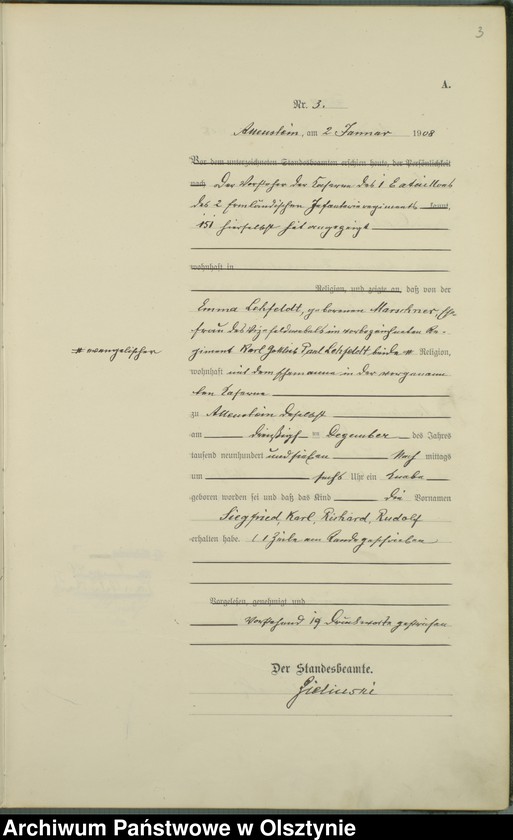 3
A.
Nr. 3.
Allenstein, am 2 Januar 1908
Vor dem unterzeichneten Standesbeamten erschien heute, der Persönlichkeit
nach Der Vorsteher der Kaserne des 1 Bataillons
des 2 Ermländischen Infanterieregiments kannt,
151 hierselbst hat angezeigt
wohnhaft in
Religion, und zeigte an, daß von der
Emma Lehfeldt, geborenen Marschner, Ehe-
frau des Vizefeldwebels im vorbezeichneten Re-
# evangelischer
giment Karl Gottlieb Paul Lehfeldt, beide # Religion,
wohnhaft mit dem Ehemanne in der vorgenann-
ten Kaserne
zu Allenstein daselbst
am dreißigsten Dezember des Jahres
tausend neunhundert und sieben Nach mittags
um sechs Uhr ein Knabe
geboren worden sei und daß das Kind die Vornamen
Siegfried, Karl, Richard, Rudolf
erhalten habe. 1 Zeile am Rande geschrieben
Vorgelesen, genehmigt und
Vorstehend 19 Druckworte gestrichen
Der Standesbeamte.
Zielinski
Archiwum Państwowe w Olsztynie